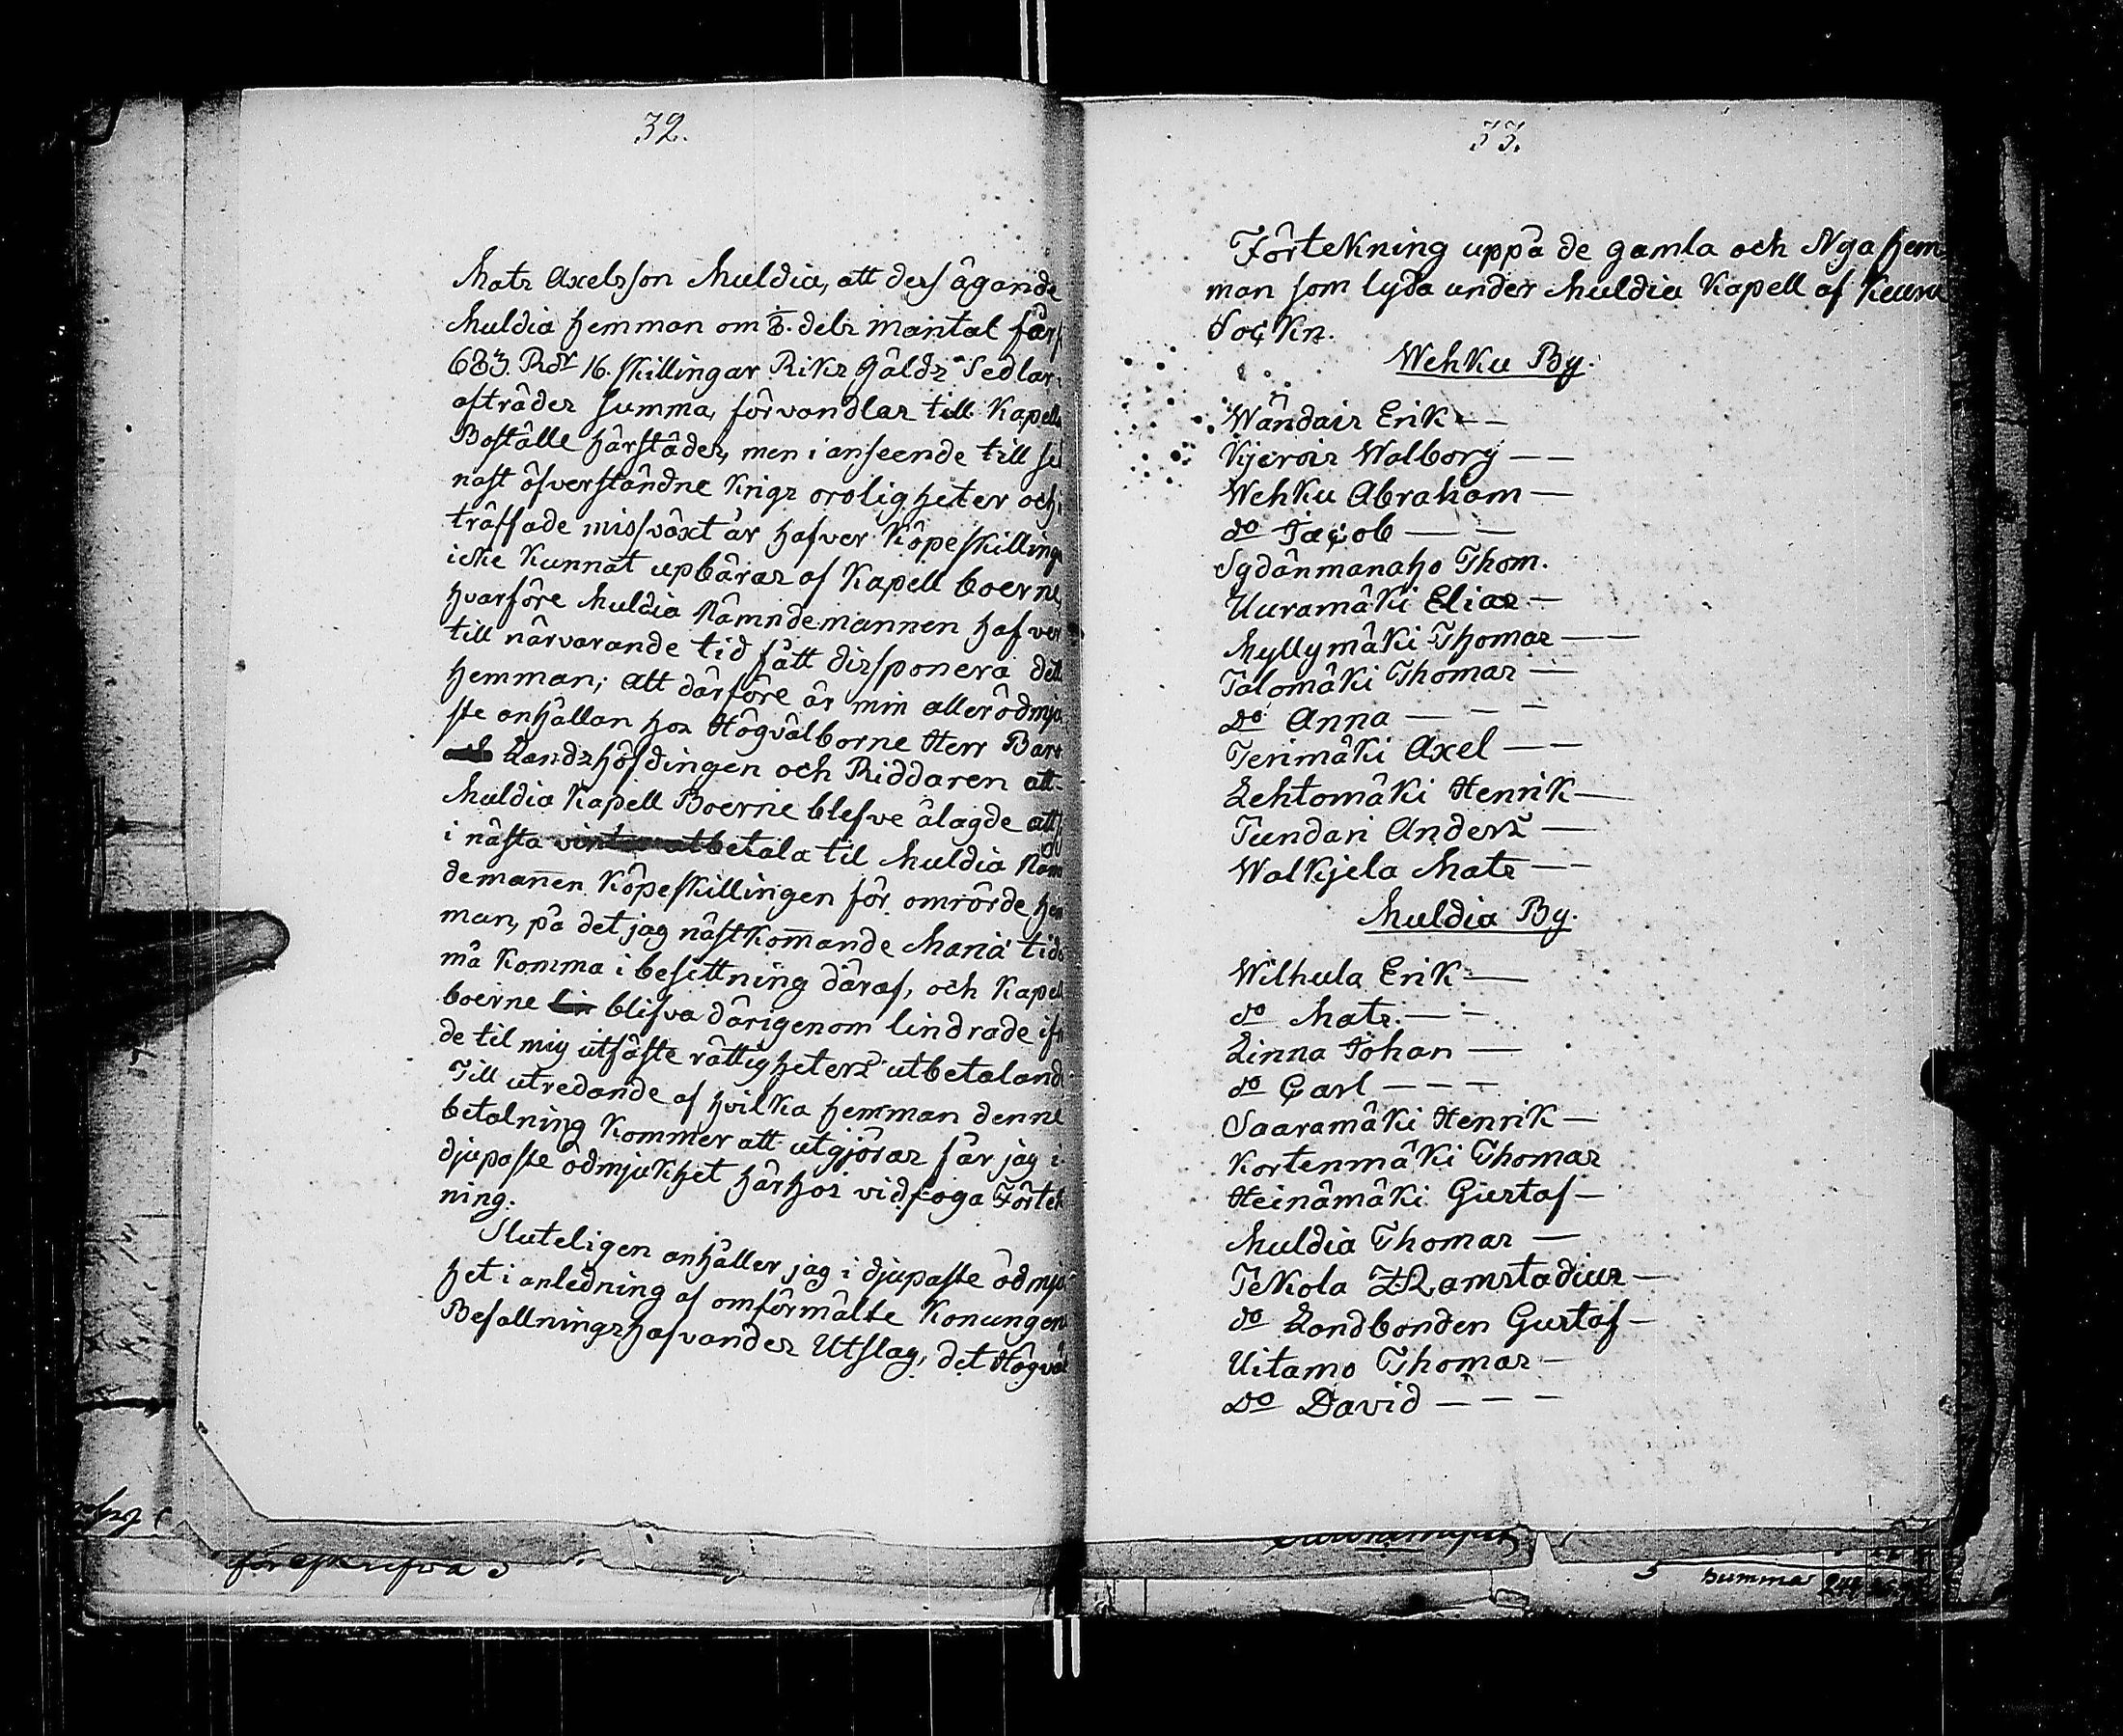 32.
Mats Axelsson Muldia, att dess ägande
Muldia Hemman om 1/8. dels mantal för
683 Rdr 16. skillingar Riks Gälds Sedlar
afträdes summa, förvandlas till Kapells
Boställe härstädes, men i anseende till se
nast öfverståndne Krigs oroligheter och
träffade missväxt år hafver Köpeskillinge
icke Kunnat upbäras af Kapell boerne,
hvarföre Muldia Nämndemannen hafver
till närvarande tid fått disponera dett
Hemman; att därföre är min allerödmju
ste anhållan hos Högvälborne Herr Baro
Landshöfdingen och Riddaren att
Muldia Kapell Boerne blefve ålagde att
i nästa vinter utbetala til Muldia Näm
demannen Köpeskillingen för omrörde hem
man, på det jag nästkommande Maria tid
må Komma i besittning däraf, och Kapell
boerne bli blifva därigenom lindrade ifr
de til mig utfäste rättigheters utbetalande
Till utredande af hvilka hemman denne
betalning Kommer att utgjöras får jag i
djupaste ödmjukhet härhos vidfoga Förtek
ning.
Sluteligen anhåller jag i djupaste ödmju
het i anledning af omförmälte Konungens
Befallningshafvandes Utslag, det Högväl
33.
Förtekning uppå de gamla och Nya Hem
man som lyda under Muldia Kapell af Keuru
Sockn.
Wehku By.
Wändais Erik — —
Kjerois Walborg — —
Wehku Abraham —
do Jacob — —
Sydänmanaho Thom.
Uuramäki Elias —
Myllymäki Thomas — —
Talomäki Thomas —
Do Anna — — —
Terimäki Axel — —
Lehtomäki Henrik —
Tundari Anders —
Walkjela Mats — —
Muldia By.
Wilhula Erik —
do Mats. — —
Linna Johan —
do Carl — — —
Saaramäki Henrik —
Kortenmäki Thomas
Heinämäki Gustaf —
Muldia Thomas —
Tekola Z. Lamstadius —
do Landbonden Gustaf —
Uitamo Thomas —
Do David — — —
föreskrifva
Summa